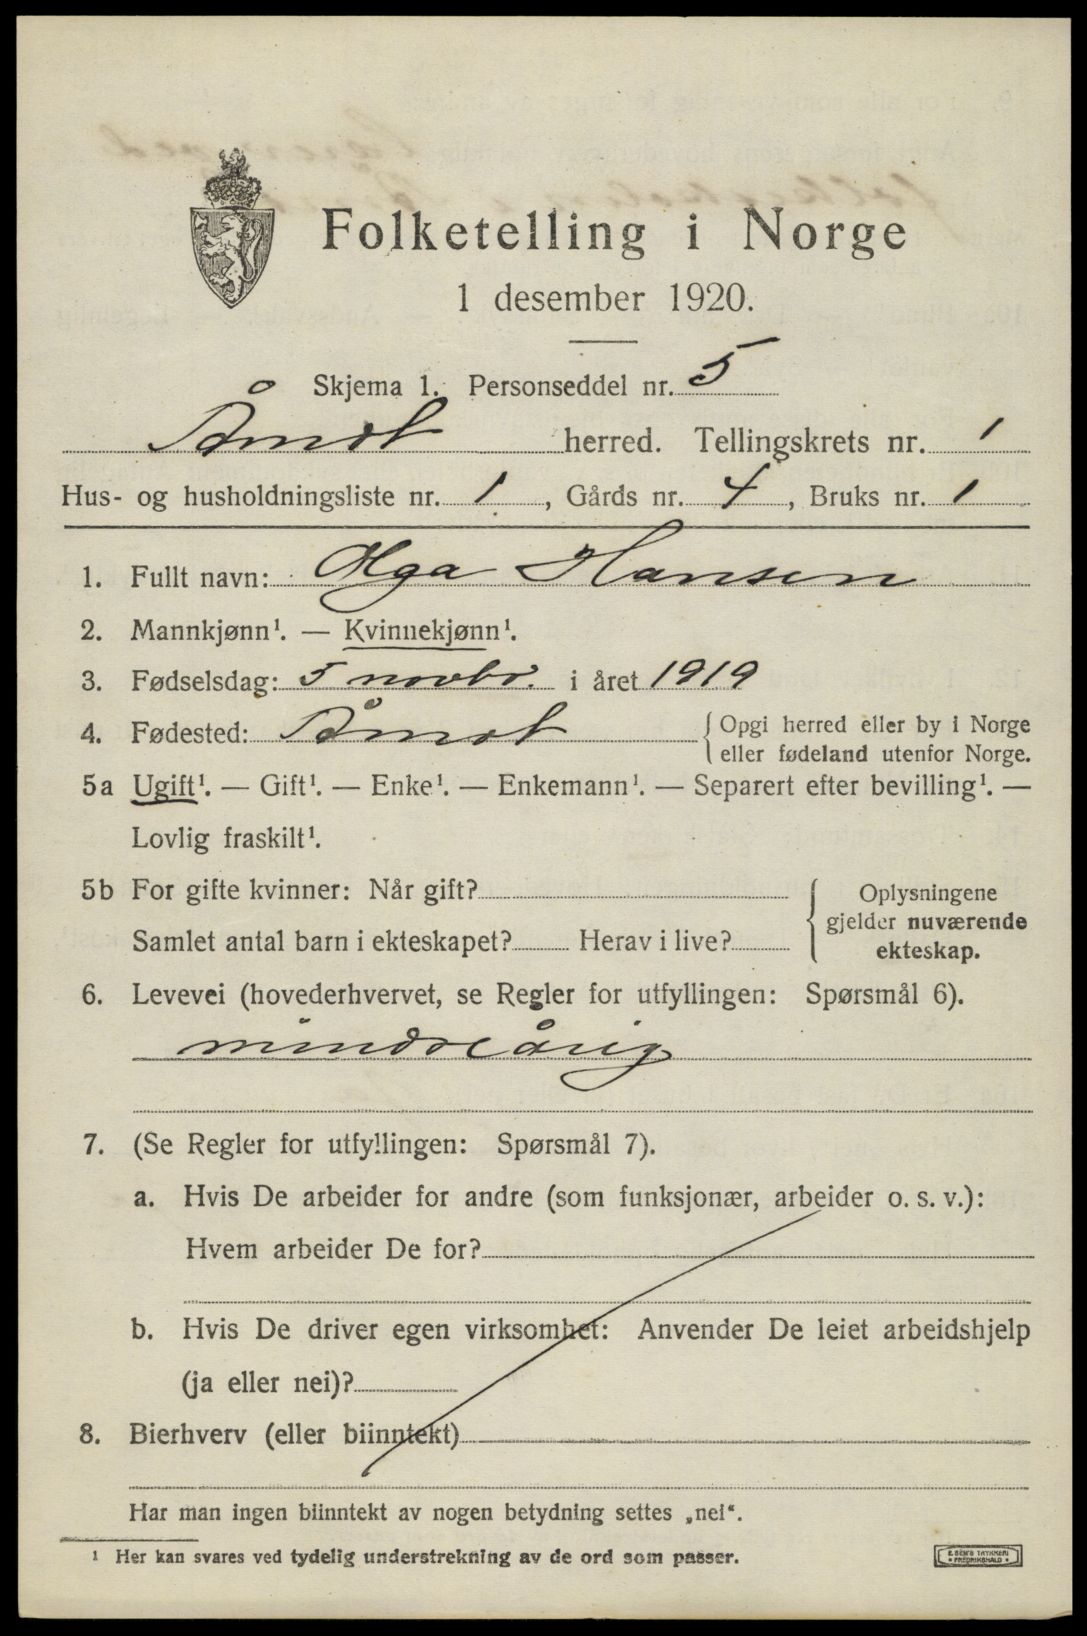 Folketelling i Norge
1 desember 1920.
Skjema 1. Personseddel nr. 5
Åmot herred. Tellingskrets nr. 1
Hus- og husholdningsliste nr. 1, Gårds nr. 4, Bruks nr. 1
1. Fullt navn: Olga Hansen
2. Mannkjønn¹. — Kvinnekjønn¹.
3. Fødselsdag: 5 novbr. i året 1919
4. Fødested: Åmot { Opgi herred eller by i Norge
eller fødeland utenfor Norge.
5a Ugift¹. — Gift¹. — Enke¹. — Enkemann¹. — Separert efter bevilling¹. —
Lovlig fraskilt¹.
5b For gifte kvinner: Når gift?
Samlet antal barn i ekteskapet? Herav i live?
Oplysningene
gjelder nuværende
ekteskap.
6. Levevei (hovederhvervet, se Regler for utfyllingen: Spørsmål 6).
mindreårig
7. (Se Regler for utfyllingen: Spørsmål 7).
a. Hvis De arbeider for andre (som funksjonær, arbeider o. s. v.):
Hvem arbeider De for?
b. Hvis De driver egen virksomhet: Anvender De leiet arbeidshjelp
(ja eller nei)?
8. Bierhverv (eller biinntekt)
Har man ingen biinntekt av nogen betydning settes „nei“.
¹ Her kan svares ved tydelig understrekning av de ord som passer.
E. SEM'S TRYKKERI
• FREDRIKSHALD •